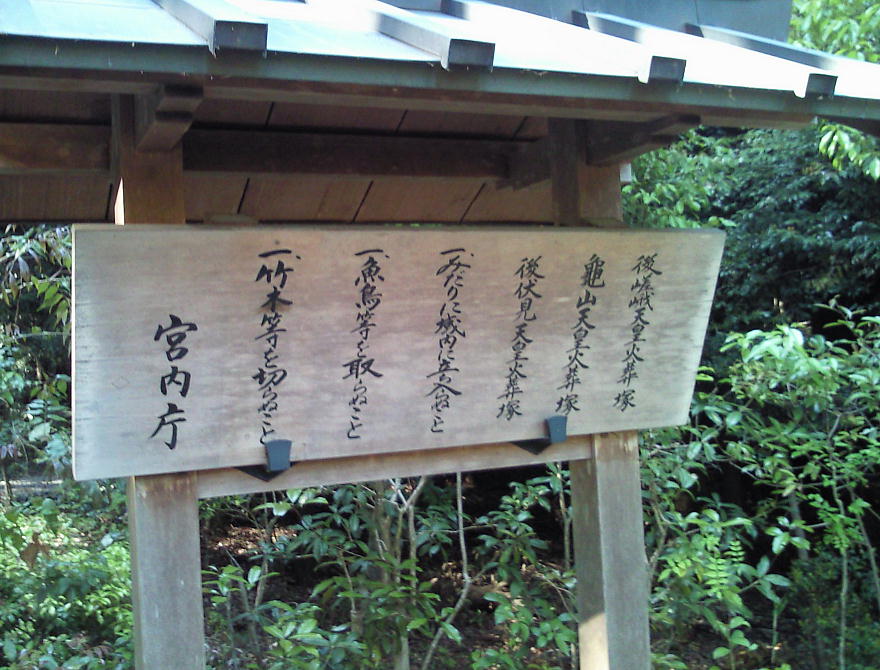 後嵯峨天皇火葬塚
龜山天皇火葬塚
後伏見天皇火葬塚
一、みだりに域内に立入らぬこと
一、魚鳥等を取らぬこと
一、竹木等を切らぬこと
宮内庁